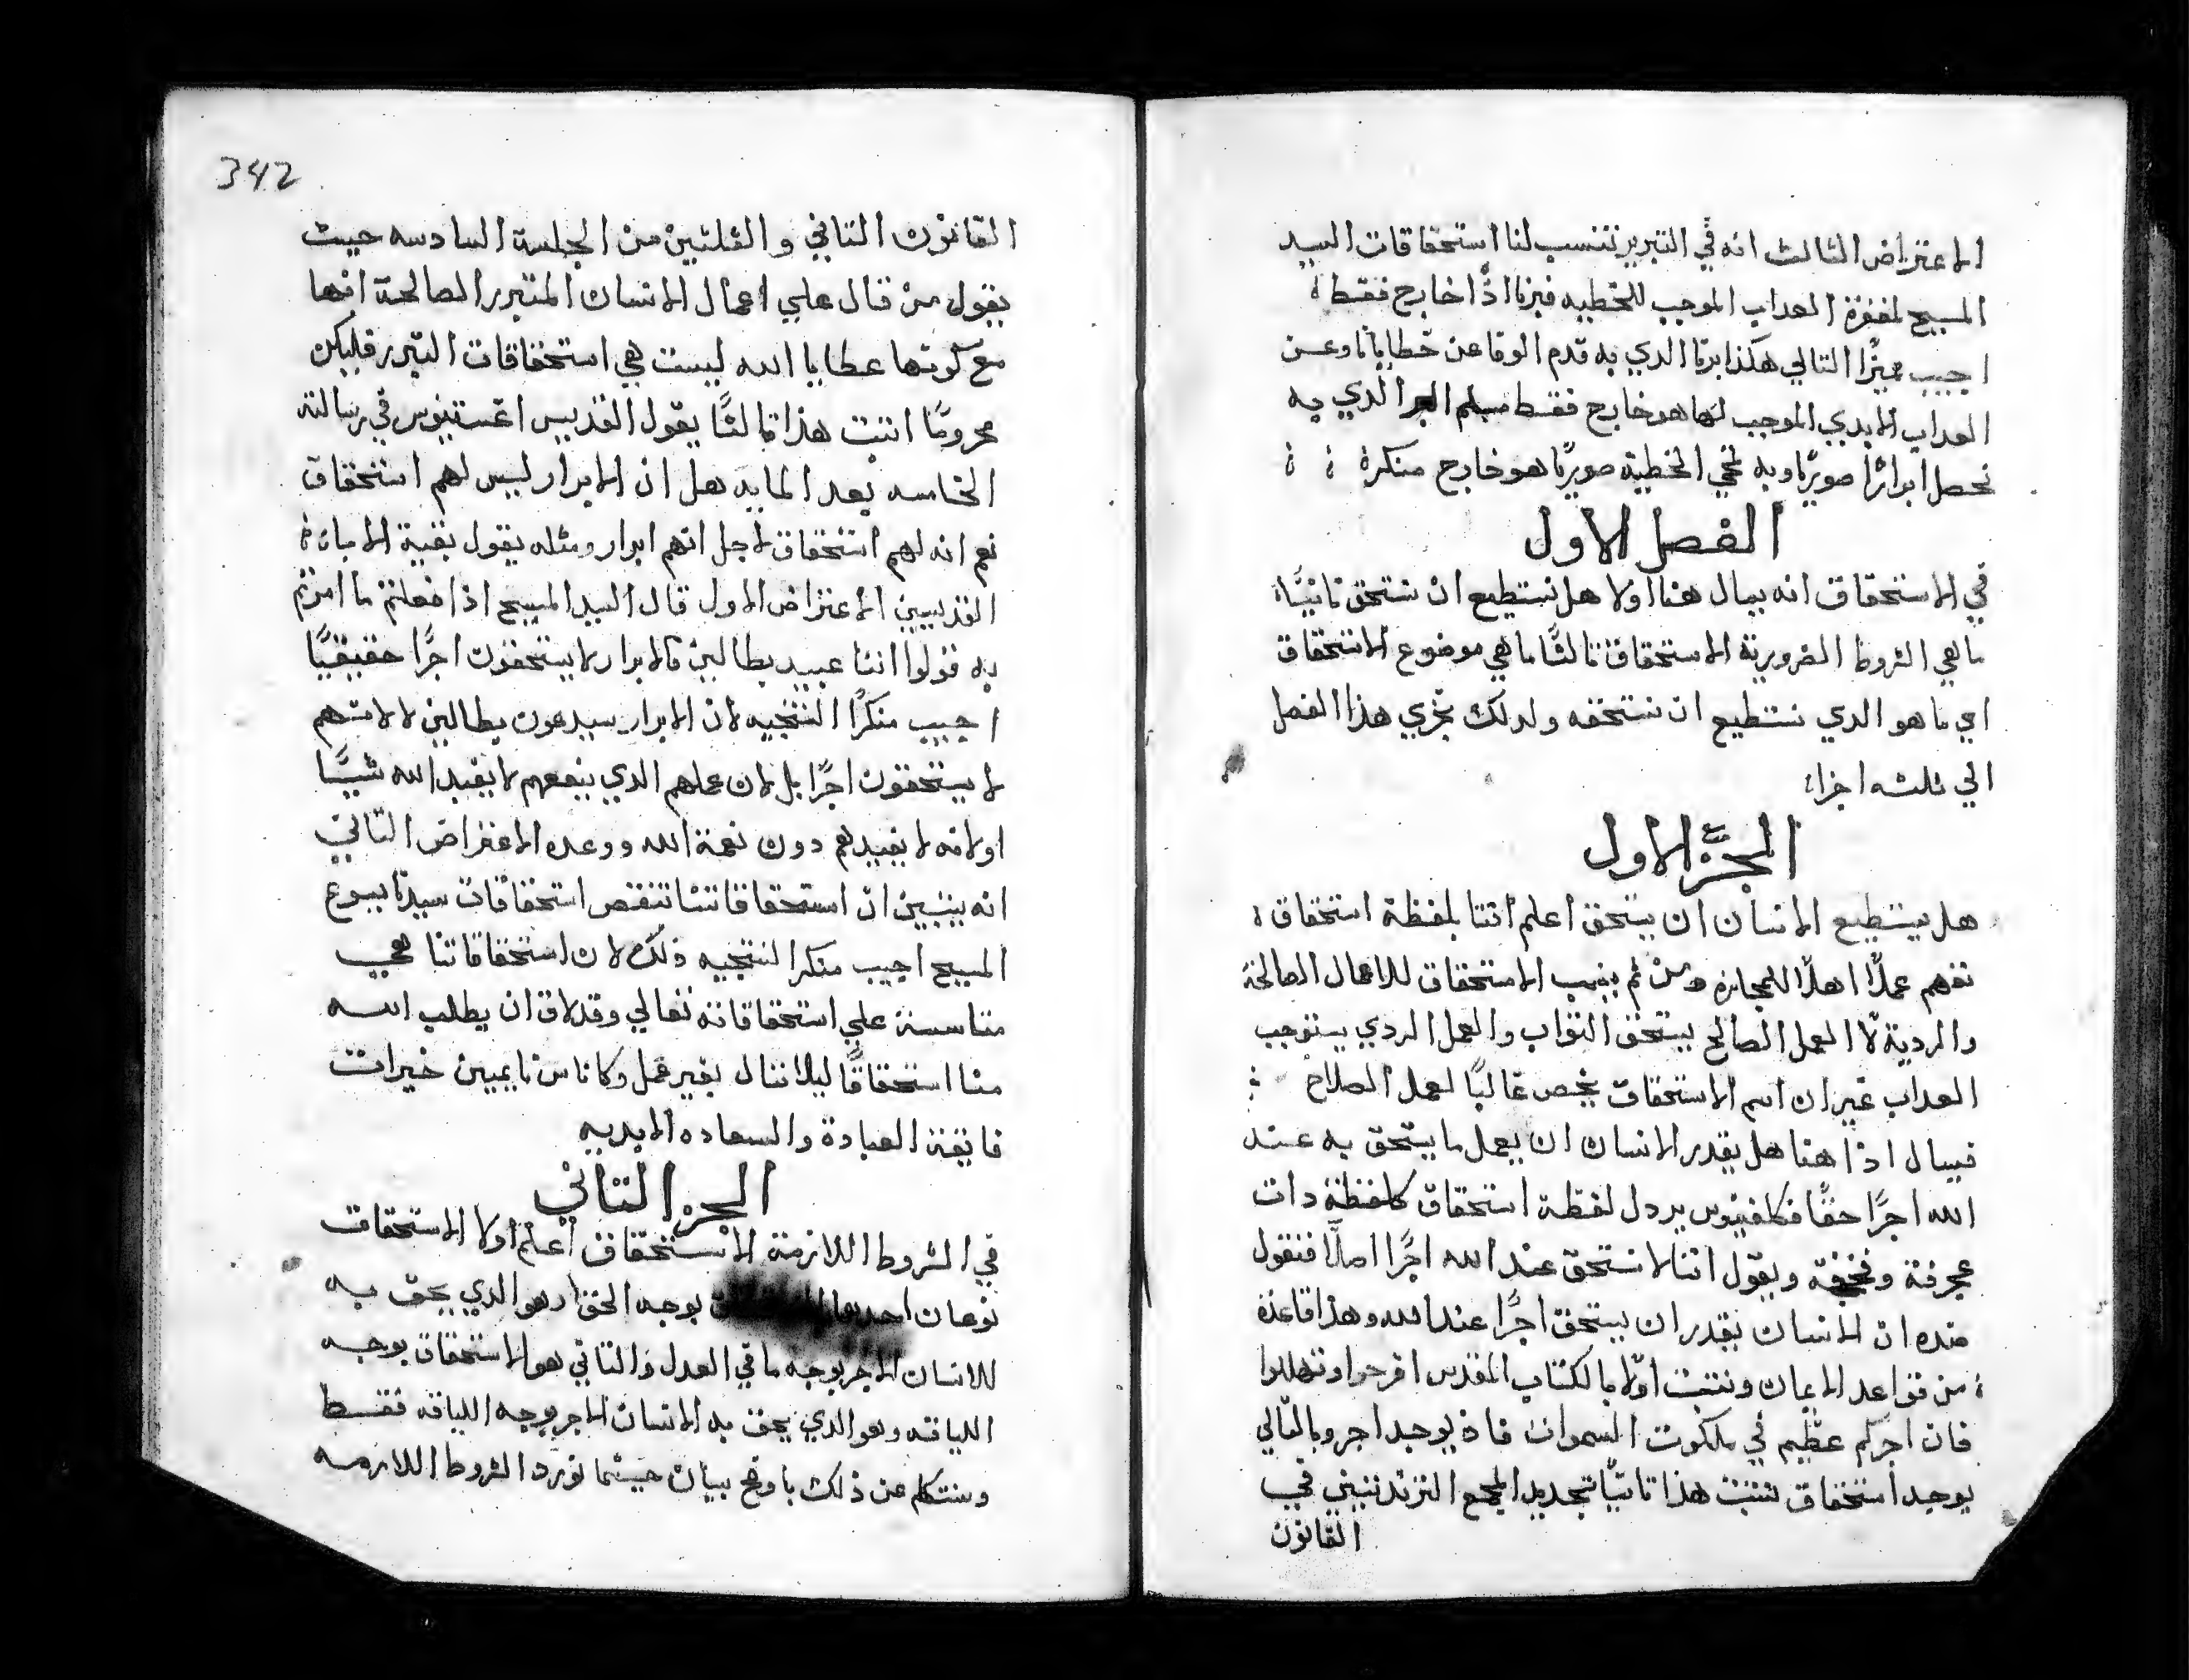 الاعتراض الثالث انه في التبرير تنسب لنا استحقاقات السيد
المسيح لمغفرة العداب الموجب للخطيه فبرنا اذًا خارج فقط
اجيب مميزًا التالي هكذا برنا الدي به قدم الوفا عن خطايانا وعن
العداب الابدي الموجب لها هو خارج فقط مسلم البر الدي به
نحصل ابرارًا صوريًا وبه تمحي الخطية صوريًا هو خارج منكرة
الفصل الاول
في الاستحقاق انه يسال هنا اولا هل نستطيع ان نستحق ثانيًا
ما هي الشروط الضرورية الاستحقاق ثالثًا ما هي موضوع الاستحقاق
اي ما هو الدي نستطيع ان نستحقه ولدلك يجزي هذا الفصل
الي ثلثه اجزاء
الجزّ الاول
هل يستطيع الانسان ان يستحق اعلم اننا بلفظة استحقاق
نفهم عملًا اهلًا للمجازه ومن ثم ينسب الاستحقاق للاعمال الصالحة
والردية لّا العمل الصالح يستحق التواب والعمل الردي يستوجب
العداب غير ان اسم الاستحقاق يخص غالبًا لعمل الصلاح
فيسال اذًا هنا هل يقدر الانسان ان يعمل ما يستحق به عند
الله اجرًا حقًا فكلفينوس يردل لفظة استحقاق كلفظة دات
عجرفة وفخفة ويقول اننا لا نستحق عند الله اجرًا اصلًا فنقول
ضده ان الانسان يقدر ان يستحق اجرًا عند الله وهذا قاعدة
من قواعد الايمان ونتبت اولًا بالكتاب المقدس افرحوا وتهللوا
فان اجركم عظيم في ملكوت السموات فاذ يوجد اجر وبالتالي
يوجد استحقاق نتبت هذا تانيًا بتحديد المجمع التريدنتيني في
القانون
342
القانون التاني والثلثين من الجلسة السادسه حيث
يقول من قال علي اعمال الانسان المتبرر الصالحة انها
مع كونها عطايا الله ليست هي استحقاقات المتبرر فليكن
محرومًا اتبت هذا تالثًا يقول القديس اغستينوس في رسالته
الخامسه بعد المايه هل ان الابرار ليس لهم استحقاق
نعم انه لهم استحقاق لاجل انهم ابرار ومثله يقول بقية الاباء
القديسين الاعتراض الاول قال السيد المسيح اذا فعلتم ما امرتم
به قولوا اننا عبيد بطالين فالابرار لا يستحقون اجرًا حقيقيًا
اجيب منكرًا النتجيه لان الابرار سيدعون بطالين لا لانهم
لا يستحقون اجرًا بل لان عملهم الدي ينفعهم لا يفيد الله شيًا
او لانه لا يفيدهم دون نعمة الله ووعده الاعتراض التاني
انه يتبين ان استحقاقاتنا تنقص استحقاقات سيدنا يسوع
المسيح اجيب منكرا النتجيه ذلك لان استحقاقاتنا هي
متاسسة علي استحقاقاته تعالي وقد لاق ان يطلب الله
منا استحقاقًا ليلا ننال بغير عمل وكاناس نايمين خيرات
فايقة العبادة والسعاده الابديه
الجز التاني
في الشروط اللازمة الاستحقاق اعلم اولا الاستحقاق
نوعان احدهما بوجه الحق وهو الدي يحق به
للانسان الاجر بوجه ما في العدل والتاني هو الاستحقاق بوجه
اللياقه وهو الدي يحق به الانسان الاجر بوجه اللياقه فقط
وسنتكلم عن ذلك باوضح بيان حيثما نورد الشروط اللازمه